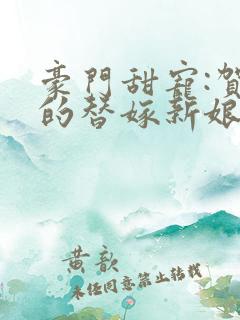 豪門甜寵:賀
的替嫁新娘
黄歆
未经同意禁止转载